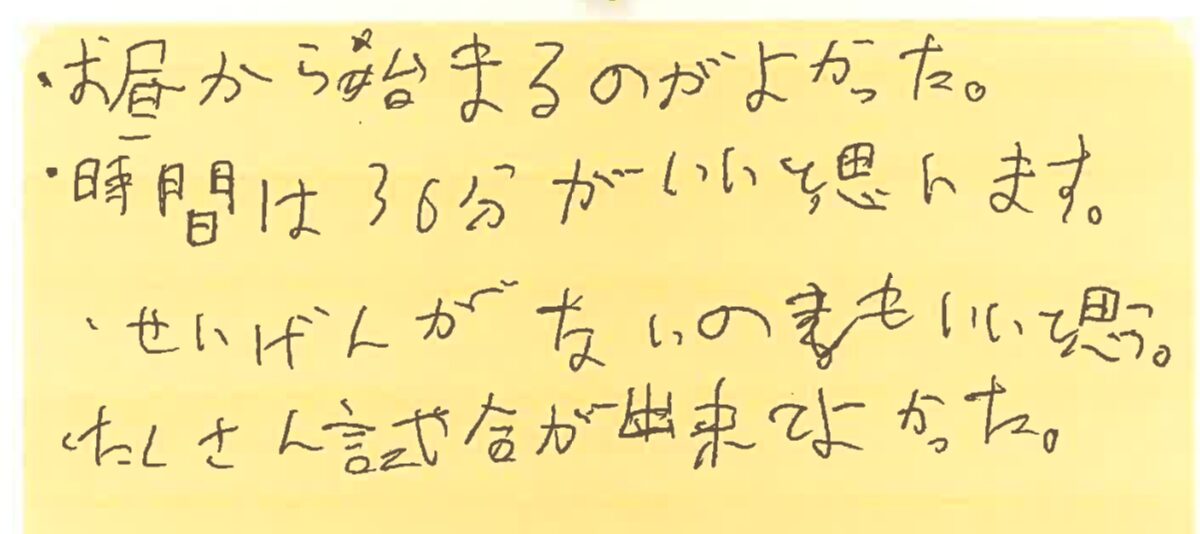 ・お昼から始まるのがよかった。
・時間は36分がいいと思います。
・せいげんがないのもいいと思う。
・たくさん試合が出来てよかった。